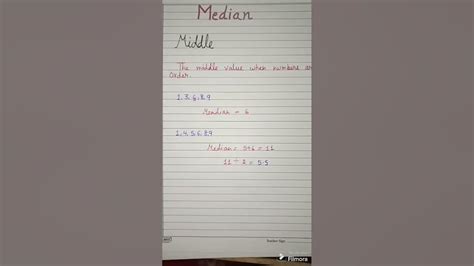 Median
Middle
The middle value when numbers are
Order.
1,3,6,8,9
Median = 6
1,4,5,6,8,9
Median = 5+6 = 11
11 ÷ 2 = 5.5
Teacher Sign
Filmora